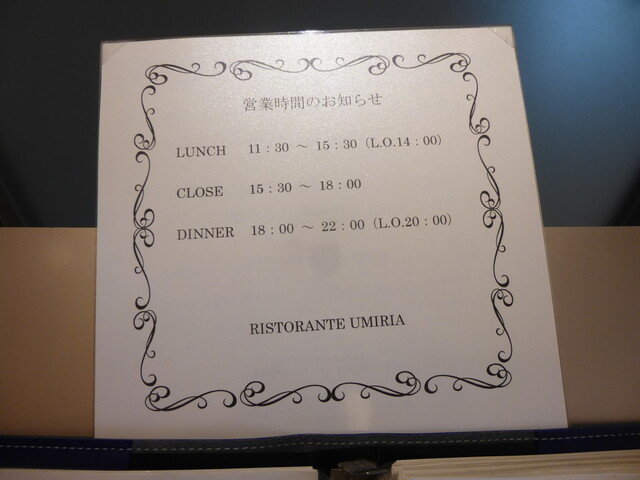 営業時間のお知らせ
LUNCH 11：30 ～ 15：30（L.O.14：00）
CLOSE 15：30 ～ 18：00
DINNER 18：00 ～ 22：00（L.O.20：00）
RISTORANTE UMIRIA